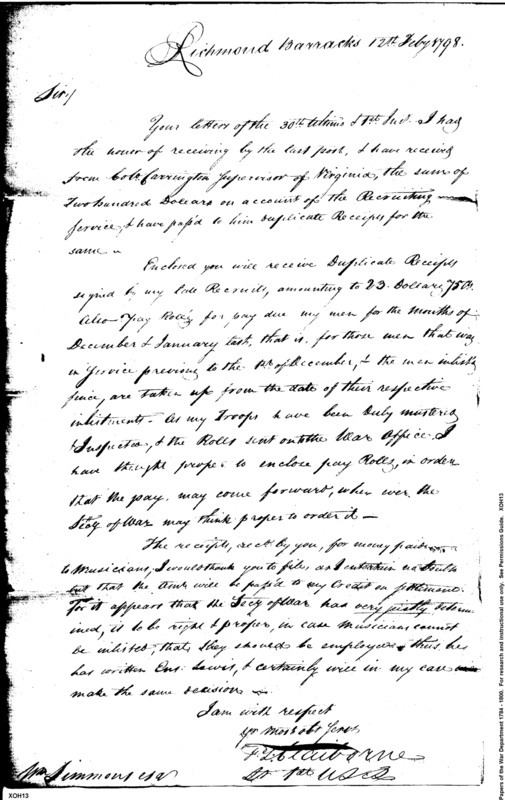 Richmond Barracks 12th Feby 1798.
Sir/
Your letters of the 30th Ultimo & 1st Inst. I had
the honor of receiving by the last post, I have received
from Colo Carrington Supervisor of Virginia, the sum of
Two hundred Dollars on account of the Recruiting
Service, & have pass'd to him Duplicate Receipts for the
same ~
Enclosed you will receive Duplicate Receipts
signed by my late Recruits, amounting to 23 Dollars 75 Cts.
Also Pay Rolls for pay due my men for the months of
December & January last, that is, for those men that was
in Service previous to the 1st of December, & the men inlisted
since, are taken up from the date of their respective
inlistments. As my Troops have been duly mustered
& Inspected, & the Rolls sent on to the War Office I
have thought proper to enclose pay Rolls, in order
that the pay may come forward, when ever the
Secy of War may think proper to order it —
The receipts, recd by you, for money paid
to Musicians, I would thank you to file, as I entertain no doubt
but that the amt will be pass'd to my Credit on settlement.
For it appears that the Secy of War has very justly determ
ined, it to be right & proper, in case Musicians cannot
be inlisted, that they should be employed, thus he
has written Ens. Lewis, & certainly will in my case
make the same decision ~
I am with respect
yr most obt Servt
F L Claiborne
Lt 1st U S
Wm Simmons esqr
XOH13
Papers of the War Department 1784 - 1800. For research and instructional use only. See Permissions Guide. XOH13